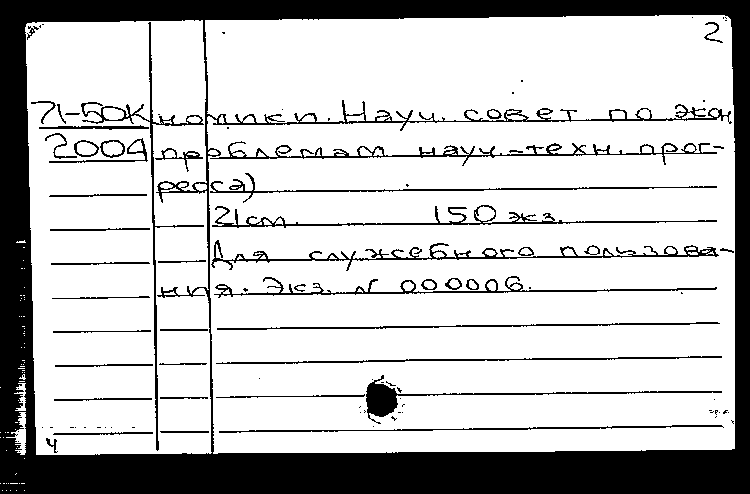 2
71-50К номики. Науч. совет по экон
2004 проблемам науч.-техн. прог-
ресса)
21см. 150 экз.
Для служебного пользова-
ния. Экз. № 000006.
4